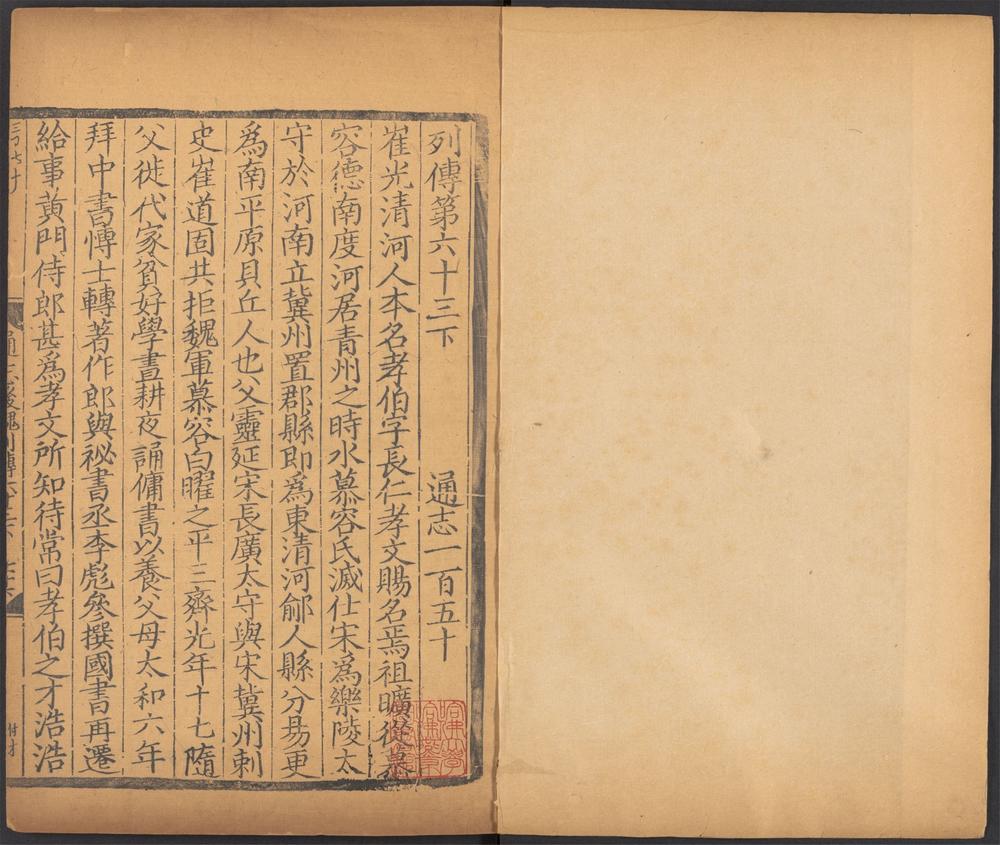 列傳第六十三下 通志一百五十
崔光清河人本名孝伯字長仁孝文賜名焉祖曠從慕
容德南度河居青州之時水慕容氏滅仕宋爲樂陵太
守於河南立冀州置郡縣即爲東清河鄃人縣分易更
爲南平原貝丘人也父靈延宋長廣太守與宋冀州刺
史崔道固共拒魏軍慕容白曜之平三齊光年十七隨
父徙代家貧好學晝耕夜誦傭書以養父母太和六年
拜中書愽士轉著作郎與祕書丞李彪叅撰國書再遷
給事黄門侍郎甚爲孝文所知待常曰孝伯之才浩浩